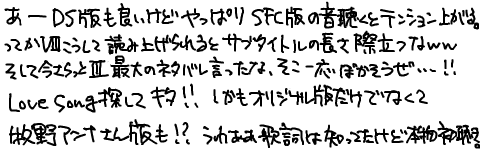 あーDS版も良いけどやっぱりSFC版の音聴くとテンション上がる。
ってかⅧこうして読み上げられるとサブタイトルの長さ際立つなww
そして今さらっとⅢ最大のネタバレ言ったな、そこ一応ぼかそうぜ…!!
Love Song探してキタ!! しかもオリジナル版だけでなく
牧野アンナさん版も!? うわああ歌詞は知ってたけど本物初聴き。